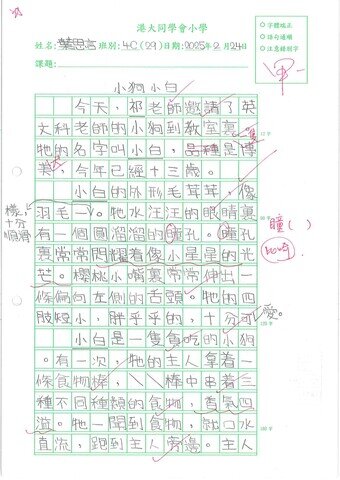 港大同學會小學
姓名：葉思言 班別：4C(29)日期：2025年2月24日
課題：
○字體端正
○語句通順
○注意錯別字
小狗小白
今天，祁老師邀請了英
文科老師的小狗到教室裏。
牠的名字叫小白，品種是博
美，今年已經十三歲。
小白的外形毛茸茸，像
羽毛一。牠水汪汪的眼睛裏
有一個圓溜溜的瞳孔。瞳孔
裏常常閃耀着像小星星的光
芒。櫻桃小嘴裏常常伸出一
條偏向左側的舌頭。牠的四
肢短小，胖乎乎的，十分可
愛。
小白是一隻貪吃的小狗
。有一次，牠的主人拿着一
條食物棒，棒中串着三
種不同種類的食物，香氣四
溢。牠一聞到食物，就口水
直流，跑到主人旁邊。主人
樣，
十分
順滑
瞳( )